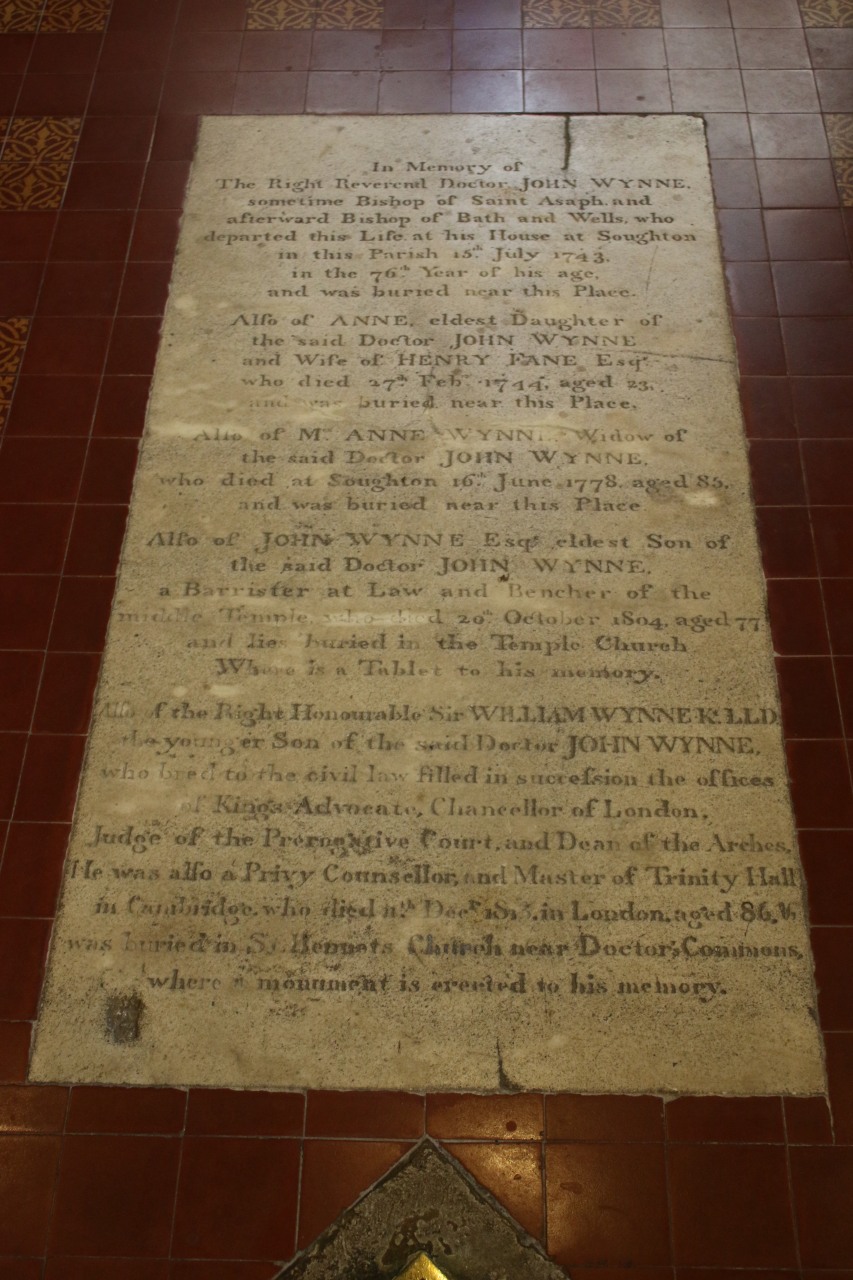 In Memory of
The Right Reverend Doctor JOHN WYNNE,
sometime Bishop of Saint Asaph, and
afterward Bishop of Bath and Wells, who
departed this Life at his House at Soughton
in this Parish 15th July 1743,
in the 76th Year of his age,
and was buried near this Place.
Alſo of ANNE, eldest Daughter of
the said Doctor JOHN WYNNE
and Wife of HENRY FANE Esqr
who died 27th Feby 1744, aged 23,
and was buried near this Place,
Alſo of Mrs ANNE WYNNE, Widow of
the said Doctor JOHN WYNNE,
who died at Soughton 16th June 1778, aged 85,
and was buried near this Place
Alſo of JOHN WYNNE Esqr eldest Son of
the said Doctor JOHN WYNNE,
a Barrister at Law and Bencher of the
middle Temple, who died 20th October 1804, aged 77
and lies buried in the Temple Church
Where is a Tablet to his memory.
Alſo of the Right Honourable Sir WILLIAM WYNNE Kt LLD
the younger Son of the said Doctor JOHN WYNNE,
who bred to the civil law filled in succeſsion the offices
of Kings Advocate, Chancellor of London,
Judge of the Prerogative Court, and Dean of the Arches,
He was alſo a Privy Counsellor, and Master of Trinity Hall
in Cambridge, who died 11th Decr in London, aged 86, &
was buried in St Bennets Church near Doctor's Commons,
where a monument is erected to his memory.